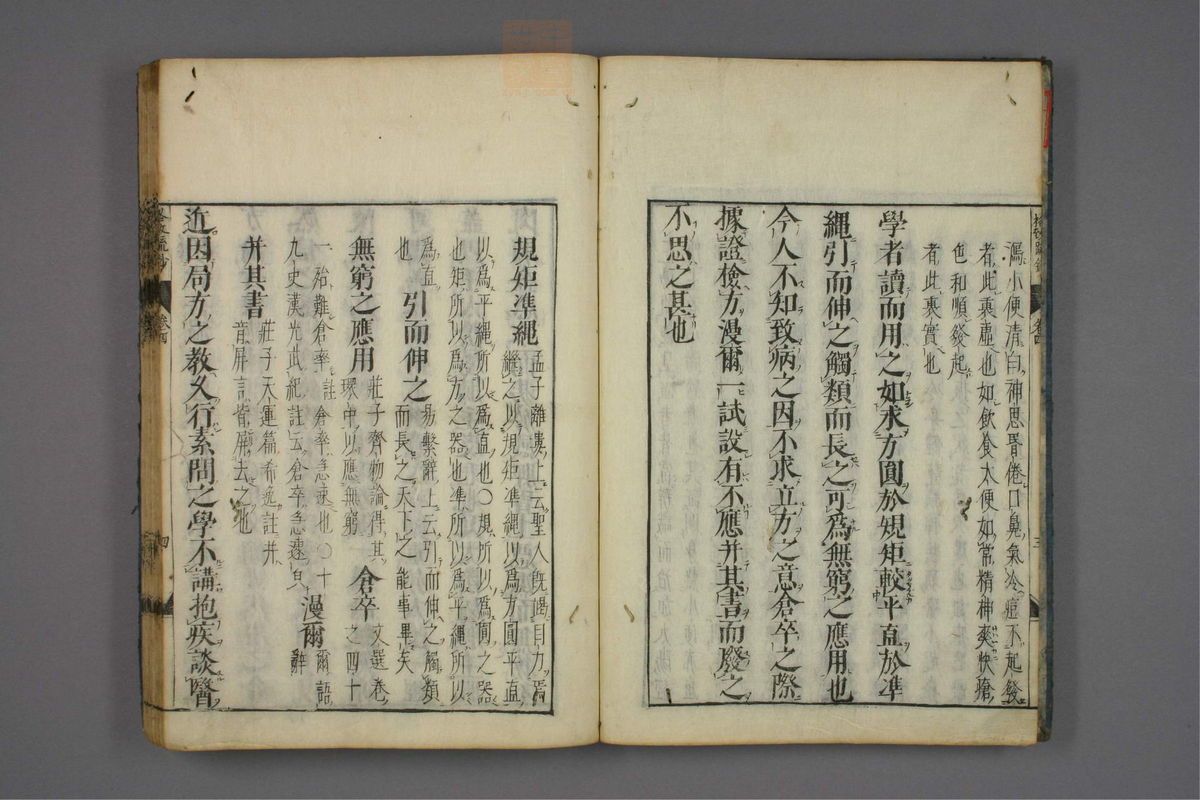 瀉小便清白神思昏倦口鼻氣冷痘不起發
者此裏虛也如飲食大便如常精神爽快瘡
色和順發起
者此裏實也
學者讀而用之如求方圓於規矩較平直於準
繩引而伸之觸類而長之可爲無窮之應用也
今人不知致病之因不求立方之意倉卒之際
據證檢方漫爾一試設有不應并其書而廢之
不思之甚也
規矩準繩 孟子離婁上云聖人既竭目力焉
繼之以規矩準繩以爲方圓平直
以爲平繩所以爲直也〇規所以爲圓之器
也矩所以爲方之器也準所以爲平繩所以
爲直
也
引而伸之 易繫辭上云引而伸之觸類
而長之天下之能事畢矣
無窮之應用 莊子齊物論得其
環中以應無窮
倉卒 文選卷
之四十
一殆難倉卒註倉卒急速也〇十
九史漢光武紀註云倉卒急速白
漫爾 爾語
辭
并其書 莊子天運篇希逸註并
音屏言皆屏去之也
近因局方之教久行素問之學不講抱疾談醫
卷四
三
卷四
四